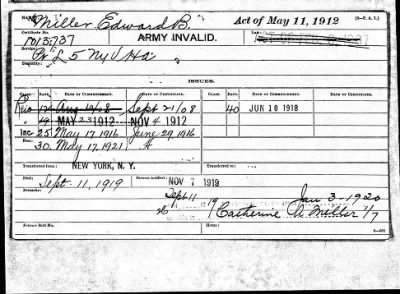 NAME: Miller Edward B. Act of May 11, 1912
Certificate No. ARMY INVALID. (3—P. A. I.)
1013737
Service: Pr. L 5 NY V Ha
Disability:
ISSUES.
CLASS. RATE. DATE OF COMMENCEMENT. DATE OF CERTIFICATE. CLASS. RATE. DATE OF COMMENCEMENT. DATE OF CERTIFICATE.
12 Aug 14/08 Sept 21/08 40 JUN 10 1918
19 MAY 23 1912 NOV 4 1912
Inc 25 May 17 1916 June 29, 1916
30 May 17, 1921 A
Transferred from: NEW YORK, N. Y. Transferred to:
Died: Sept. 11, 1919 Bureau notified: NOV 7 1919
Remarks: Sept 11 Jan 3-1920
19 Catherine A. Miller
Former Roll No. Home: